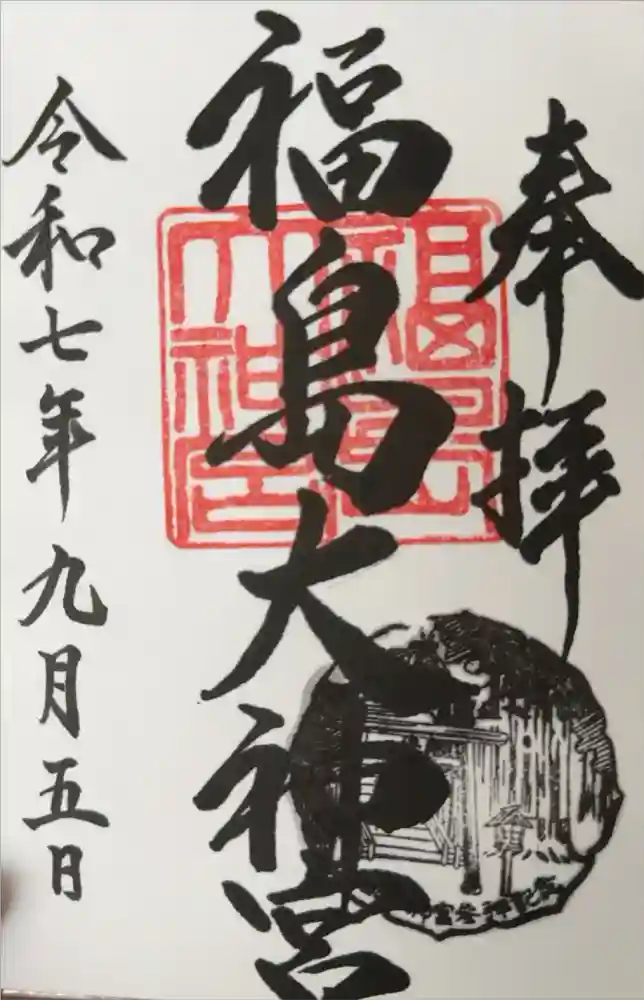 奉拝
福島大神宮
福島大神宮
令和七年九月五日